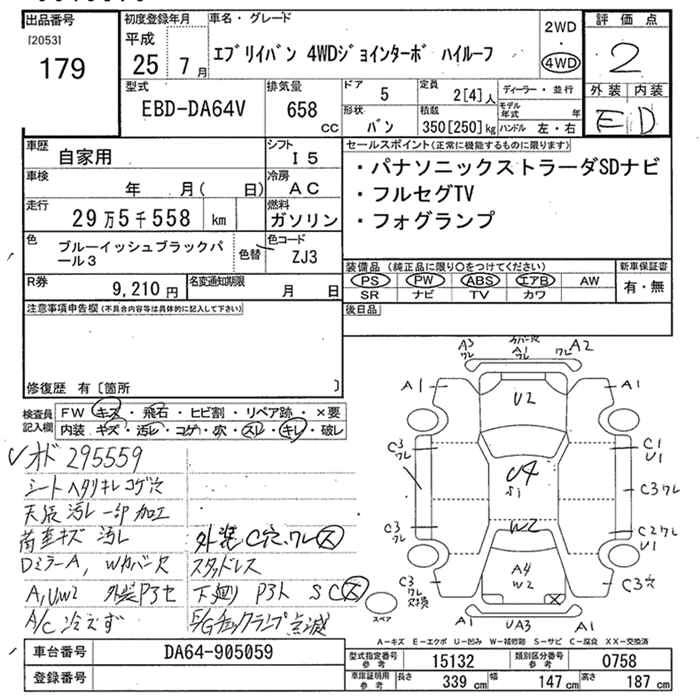 出品番号
[2053]
179
初度登録年月
平成
25 7月
車名・グレード
エブリイバン 4WDジョインターボ ハイルーフ
2WD
・
4WD
評価点
2
外装 内装
E D
型式
EBD-DA64V
排気量
658 cc
ドア 5
形状 バン
定員 2[4]人
積載 350[250]kg
ディーラー・並行
モデル年式 年
ハンドル 左・右
車歴 自家用
シフト I5
車検 年 月( 日)
冷房 AC
走行 29万5千558 km
燃料 ガソリン
色 ブルーイッシュブラックパール3
色替
色コード ZJ3
R券 9,210円
名変通知期限 月 日
セールスポイント(正常に機能するものに限ります)
・パナソニックストラーダSDナビ
・フルセグTV
・フォグランプ
装備品(純正品に限り○をつけてください)
PS PW ABS エアB AW
SR ナビ TV カワ
新車保証書
有・無
後日品
注意事項申告欄(不具合内容等は具体的に記入して下さい)
修復歴 有〔箇所 〕
検査員記入欄
FW キズ・飛石・ヒビ割・リペア跡・×要
内装 キズ・汚レ・コゲ・穴・スレ・キレ・破レ
レオド 295559
シートヘタリキレコゲ穴
天張汚レ 一部加工
荷室キズ汚レ
外装C穴、ワレ ス
DミラーA、Wカバー欠
スタッドレス
A,U,W2 外装P3セ
下廻り P3ト S C ス
A/C 冷えず
E/Gチェックランプ点滅
A3 ワレ
カバー欠
A1
ワレ A2
A1
A1
U2
C3 ワレ
C1 U1
U4
S1
C3ワレ
W2
C3 ワレ
C2ワレ
U1
A4
W2
C3 ワレ 欠損
C3穴
スペア
A1
UA3
A1
A-キズ E-エクボ U-凹み W-補修跡 S-サビ C-腐食 XX-交換済
車台番号 DA64-905059
登録番号
型式指定番号 参考 15132
類別区分番号 参考 0758
車庫証明用 参考 長さ 339cm 幅 147cm 高さ 187cm